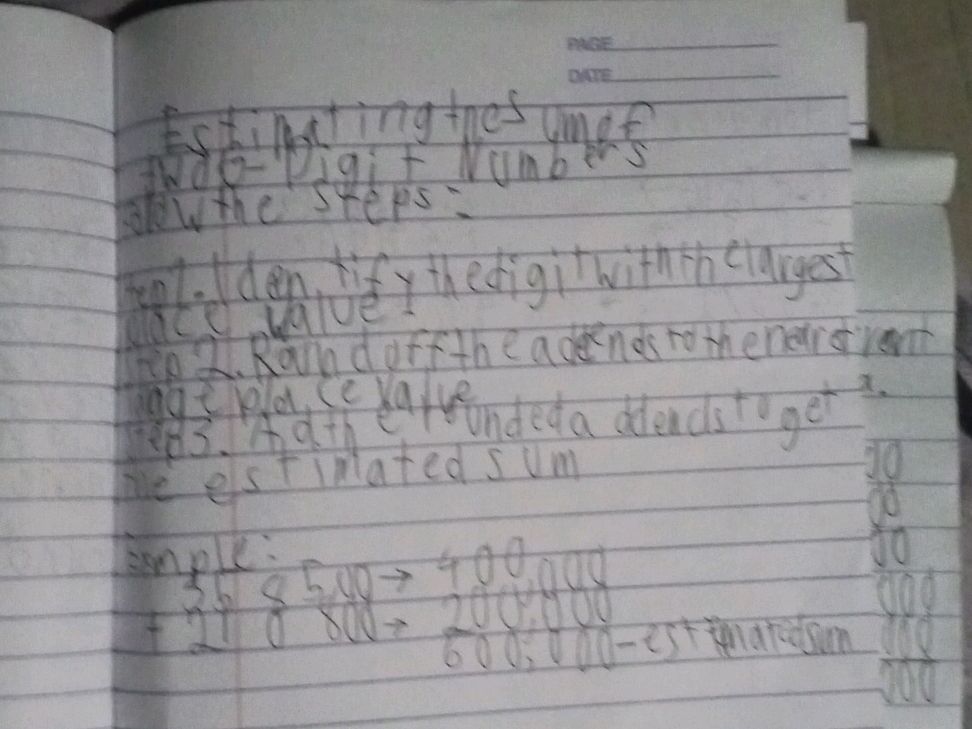 PAGE
DATE
Estimating the sum of
two-Digit Numbers
the steps:
Identify the digit with the largest
place value
2. Round off the addends to the nearest
place value
Add the rounded addends to get
the estimated sum
Example:
358 500 → 400,000
+ 210 800 → 200,000
600,000 - estimated sum
00
00
00
000
000
000